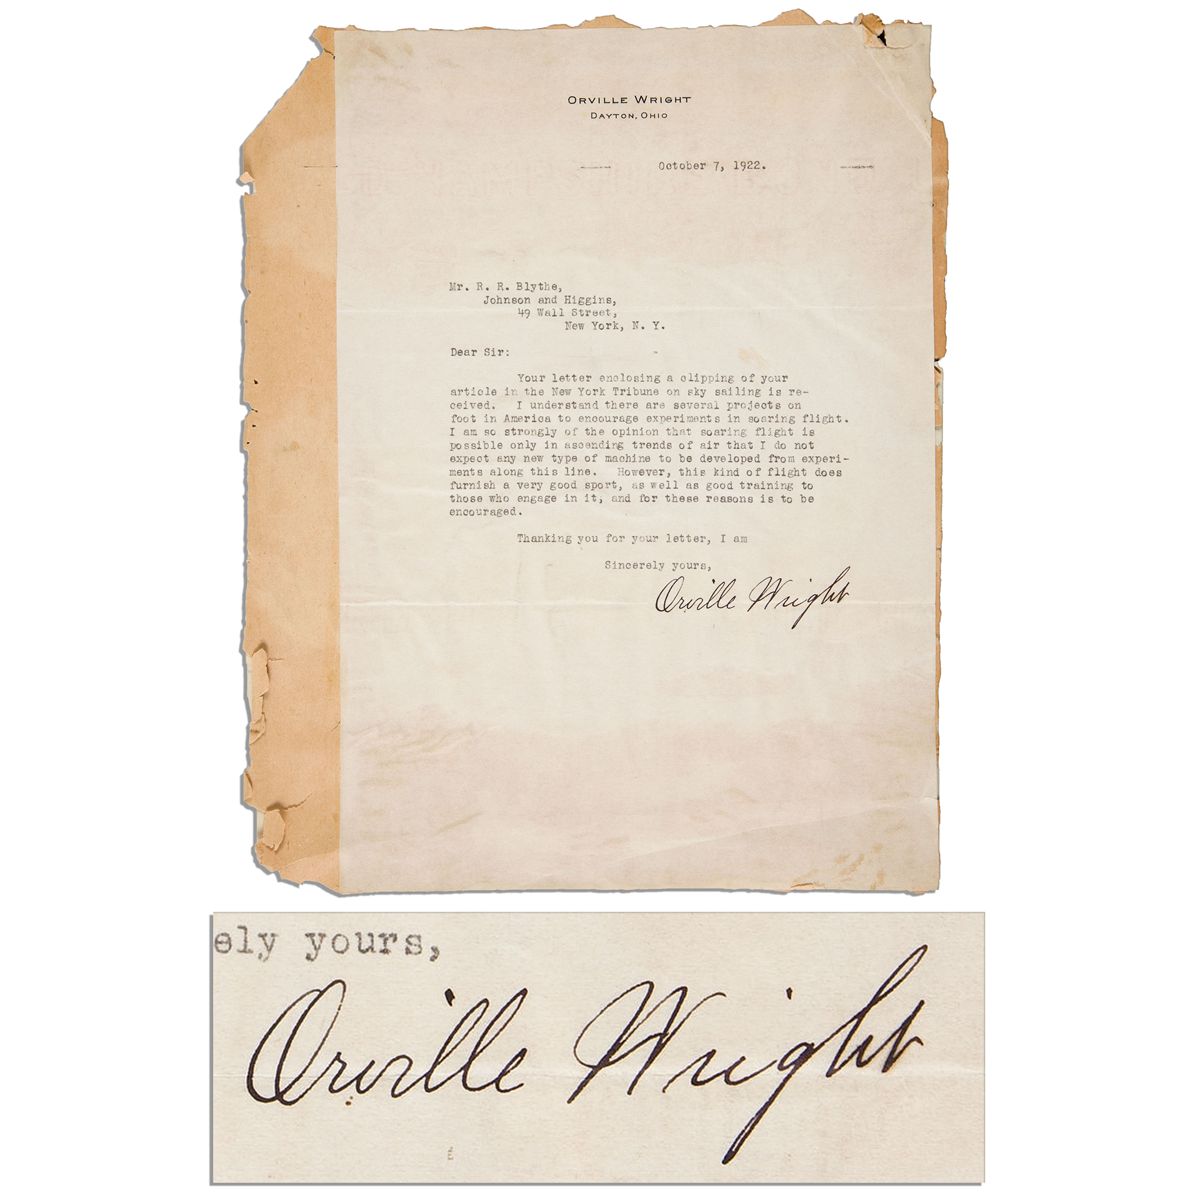 ORVILLE WRIGHT
DAYTON, OHIO
October 7, 1922.
Mr. R. R. Blythe,
Johnson and Higgins,
49 Wall Street,
New York, N. Y.
Dear Sir:
Your letter enclosing a clipping of your
article in the New York Tribune on sky sailing is re-
ceived. I understand there are several projects on
foot in America to encourage experiments in soaring flight.
I am so strongly of the opinion that soaring flight is
possible only in ascending trends of air that I do not
expect any new type of machine to be developed from experi-
ments along this line. However, this kind of flight does
furnish a very good sport, as well as good training to
those who engage in it, and for these reasons is to be
encouraged.
Thanking you for your letter, I am
Sincerely yours,
Orville Wright
ely yours,
Orville Wright